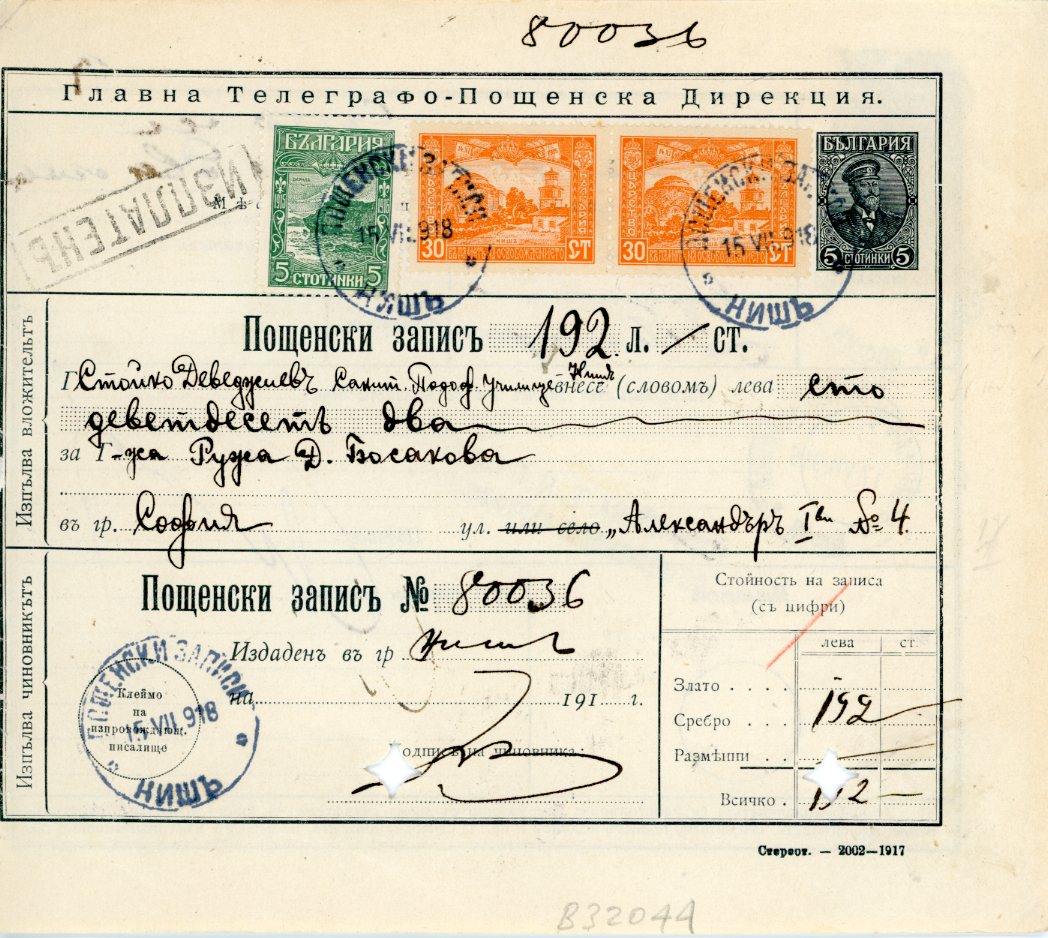 80036
Главна Телеграфо-Пощенска Дирекция.
ИЗПЛАТЕНЪ
БЪЛГАРИЯ
5 СТОТИНКИ 5
30 СТ
НИША
30 СТ
БЪЛГАРИЯ
5 СТОТИНКИ 5
ПОЩЕНСКИ ЗАПИСИ
15.VII.918
НИШЪ
ПОЩЕНСКИ ЗАПИСИ
15.VII.918
НИШЪ
Изпълва вложительтъ
Пощенски записъ 192 л. / ст.
Г Стойко Деведжиевъ Санит. Подоф. Училище Нишъ внесе (словомъ) лева сто
деветдесетъ два
за Г-жа Ружа Д. Босакова
въ гр. София ул. или село „Александъръ I" № 4
Изпълва чиновникътъ
Пощенски записъ № 80036
Издаденъ въ гр Нишъ
на 191 г.
Подписъ на чиновника:
ПОЩЕНСКИ ЗАПИСИ
Клеймо
на
изпровождающ.
писалище
15.VII.918
НИШЪ
Стойность на записа
(съ цифри)
лева ст.
Злато . . . .
Сребро . . . . 192 —
Размѣнни . . . —
Всичко . 192 —
Стереот. — 2002—1917
B32044